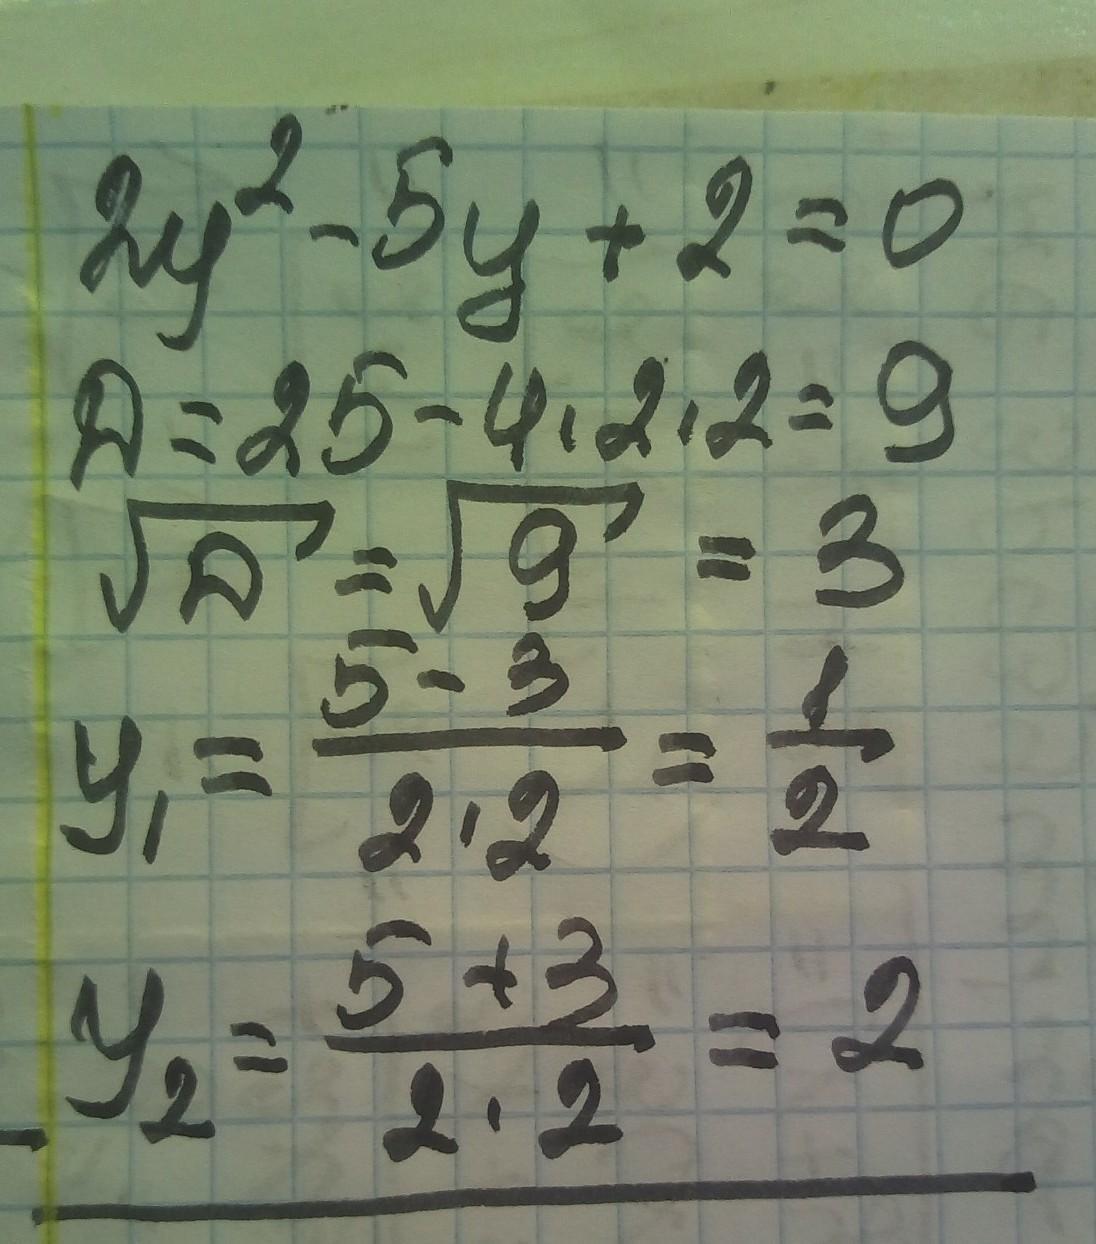 2y² - 5y + 2 = 0
Д = 25 - 4·2·2 = 9
√Д = √9 = 3
y₁ = (5 - 3)/(2·2) = 1/2
y₂ = (5 + 3)/(2·2) = 2